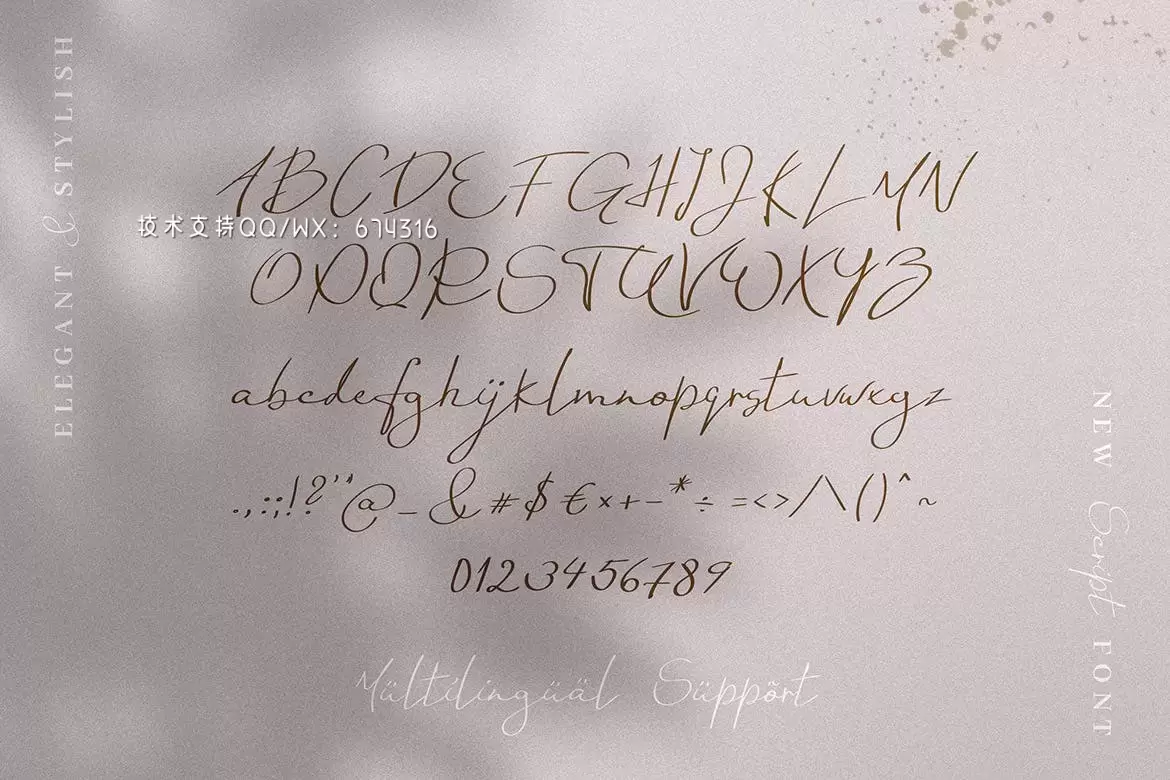 ELEGANT & STYLISH
ABCDEFGHIJKLMN
技术支持QQ/WX: 674316
OPQRSTUVWXYZ
abcdefghijklmnopqrstuvwxyz
.,:;!?'"@_&#$€×+-*÷=<>/\()^~
0123456789
Mültilingüäl Süppõrt
NEW Script FONT